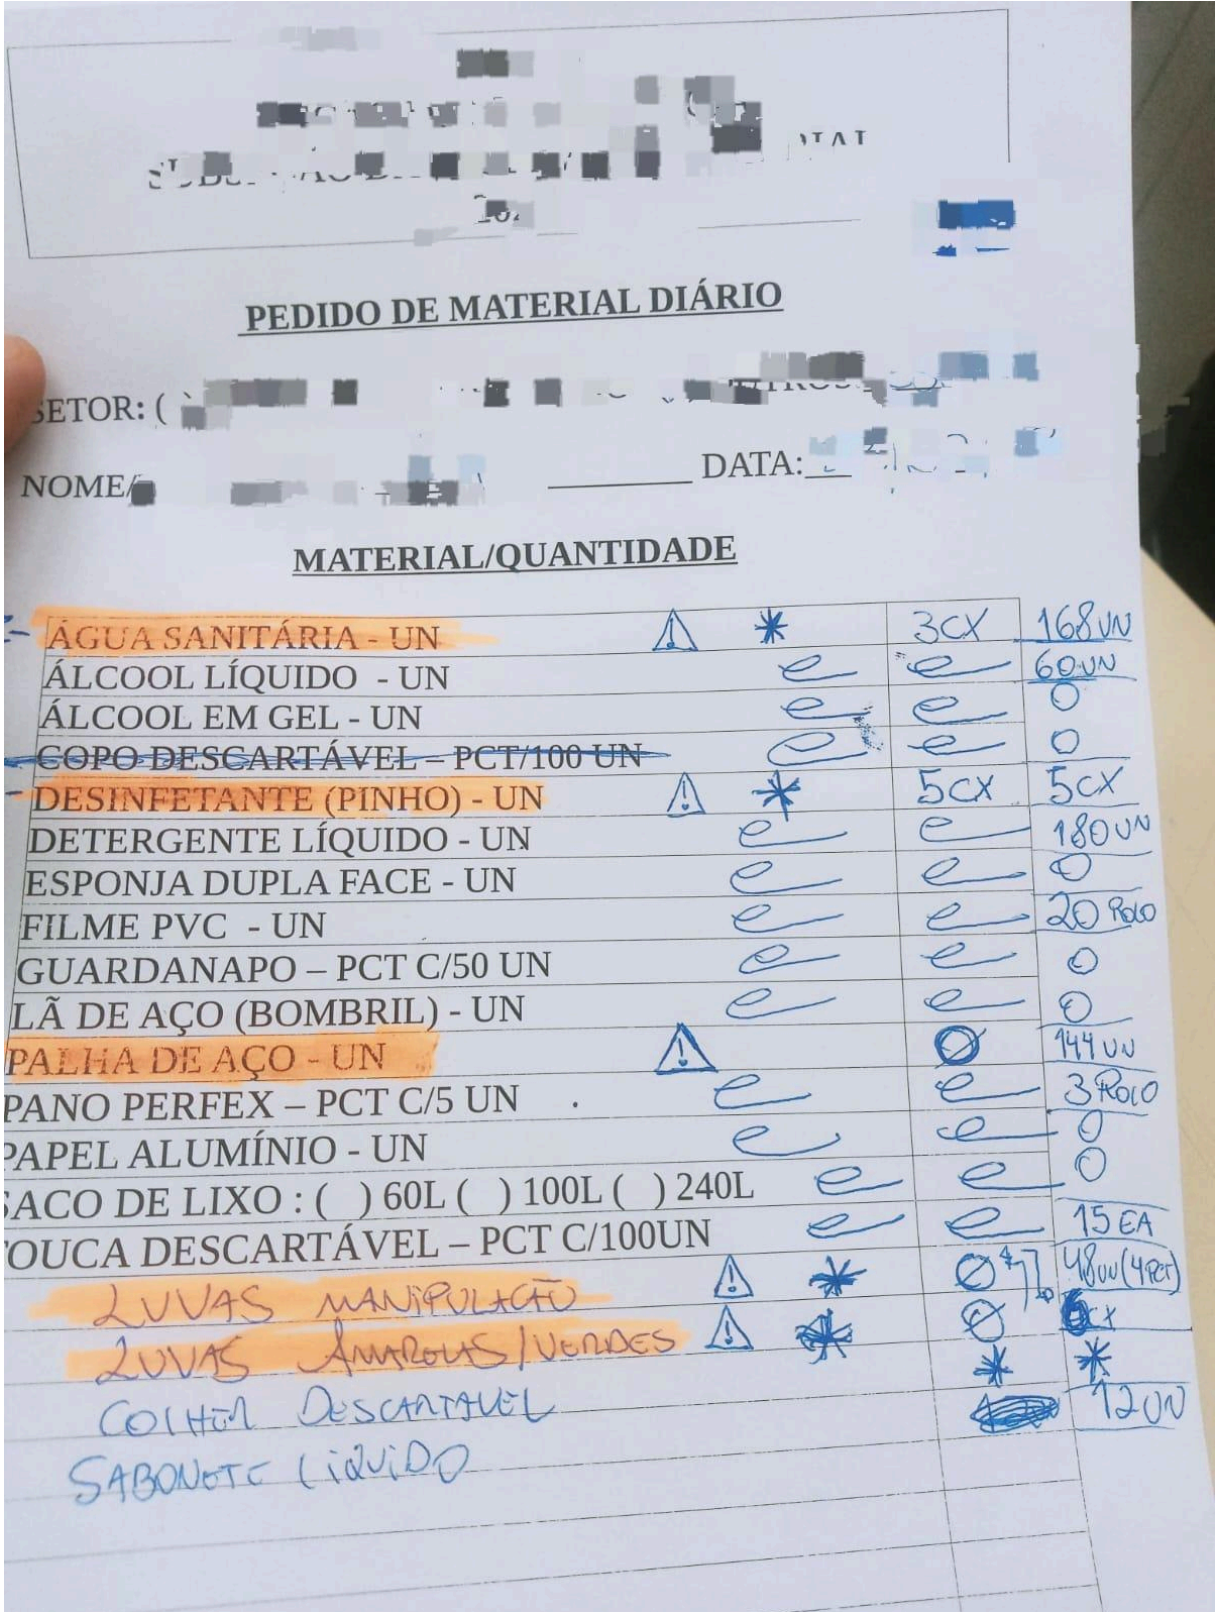 PEDIDO DE MATERIAL DIÁRIO
SETOR: (
NOME/ DATA:
MATERIAL/QUANTIDADE
ÁGUA SANITÁRIA - UN 3CX 168UN
ÁLCOOL LÍQUIDO - UN 60UN
ÁLCOOL EM GEL - UN 0
COPO DESCARTÁVEL – PCT/100 UN 0
DESINFETANTE (PINHO) - UN 5CX 5CX
DETERGENTE LÍQUIDO - UN 180UN
ESPONJA DUPLA FACE - UN 0
FILME PVC - UN 20 ROLO
GUARDANAPO – PCT C/50 UN 0
LÃ DE AÇO (BOMBRIL) - UN 0
PALHA DE AÇO - UN 0 144UN
PANO PERFEX – PCT C/5 UN 3 ROLO
PAPEL ALUMÍNIO - UN 0
SACO DE LIXO : ( ) 60L ( ) 100L ( ) 240L 0
TOUCA DESCARTÁVEL – PCT C/100UN 15 EA
LUVAS MANIPULAÇÃO 48UN(4PCT)
LUVAS AMARELAS/VERDES
COLHER DESCARTAVEL
SABONETE LIQUIDO 12UN